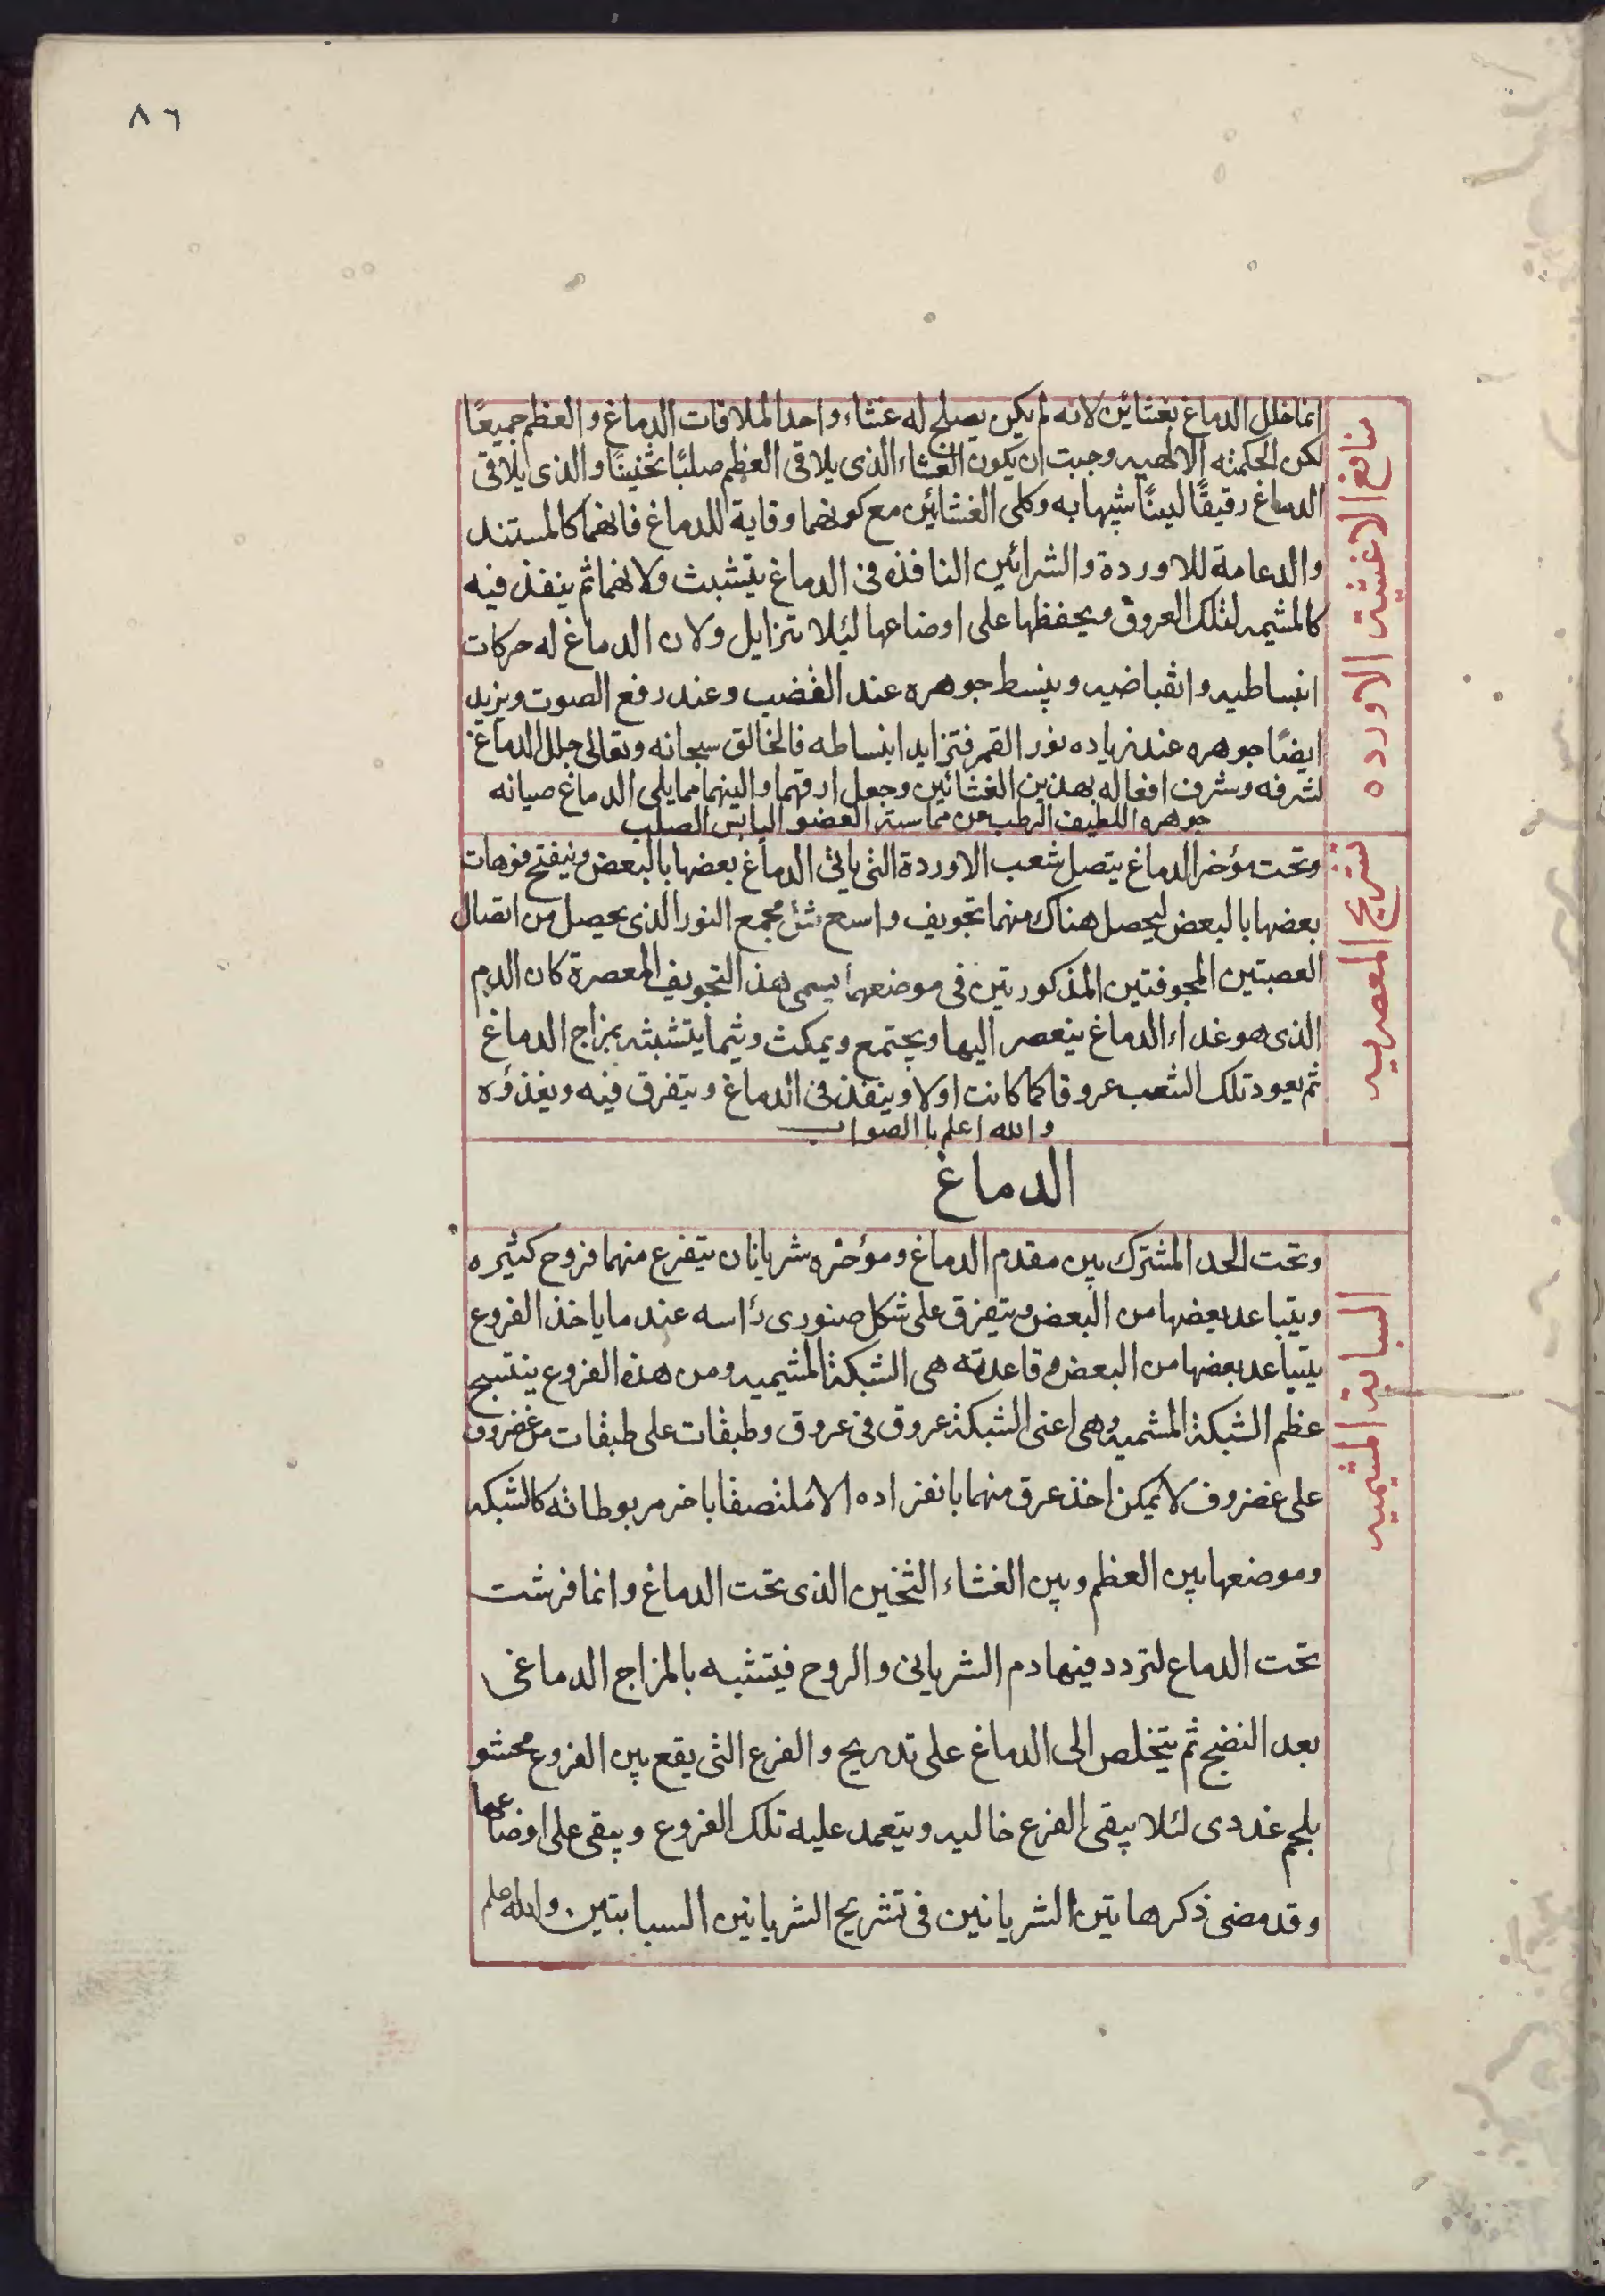 ٨٦
منافع الاغشيته الاورده
انما خلل الدماغ بغشائين لانه لم يكن يصلح له غشاء واحدا لملاقات الدماغ والعظم جميعًا
لكن الحكمته الالهيه وجبت ان يكون الغشاء الذى يلاقى العظم صلبًا ثخنينًا والذى يلاقى
الدماغ رقيقًا لينًا شبيها به وكلى الغشائين مع كونهما وقاية للدماغ فانهما كالمستند
والدعامة للاوردة والشرائين النافذه فى الدماغ يتشبث ولانهما ثم ينفذ فيه
كالمشيمه لتلك العروق ويحفظها على اوضاعها ليئلا تتزايل ولان الدماغ له حركات
انبساطيه وانقباضيه وينبسط جوهره عند الغضب وعند رفع الصوت ويزيد
ايضًا جوهره عند زياده نور القمر فتزايد ابنساطه فالخالق سبحانه وتعالى جلل الدماغ
لشرفه وشرف افعاله بهذين الغشائين وجعل ارقهما والينهما مما يلى الدماغ صيانه
جوهره اللطيف الرطب من مماسته العضو اليابس الصلب
تشريح المعصريه
وتحت مؤخر الدماغ يتصل شعب الاوردة التى ياتى الدماغ بعضها بالبعض وينفتح فوهات
بعضها بالبعض ليحصل هناك منهما تجويف واسع مثل مجمع النور الذى يحصل من اتصال
العصبتين المجوفتين المذكورتين فى موضعهما يسمى هذ التجويف المعصرة كان الدم
الذى هو غداء الدماغ ينعصر اليها ويجتمع ويمكث ويثما يتشبثه بمزاج الدماغ
ثم يعود تلك الشعب عروقا كما كانت اولا وينفذ فى الدماغ ويتفرق فيه ويغذؤه
والله اعلم باالصواب
الدماغ
السباته المشيميه
وتحت الحد المشترك بين مقدم الدماغ ومؤخره شريانان يتفرع منهما فروح كثيره
ويتباعد بعضها من البعض ويتفرق على شكل صنورى رٔاسه عند ما ياخذ الفروع
يتباعد بعضها من البعض وقاعدته هى الشبكة المشيميه ومن هذه الفروع ينتسبح
عظم الشبكة المشميه وهى اعنى الشبكة عروق فى عروق وطبقات على طبقات من غضروف
على غضروف لا يمكن اخذ عرق منهما بانفراده الا ملتصفا باخر مربوطا به كالشبكه
وموضعها بين العظم وبين الغشاء الثخين الذى تحت الدماغ وانما فرشت
تحت الدماغ لتردد فيها دم الشريانى والروح فيتشبه بالمزاج الدماغى
بعد النضج ثم يتخلص الى الدماغ على تدريج والفرع التى يقع بين الفروع محشو
بلحم غددى لئلا يبقى الفرع خاليه ويتعمد عليه تلك الفروع ويبقى على اوضاعها
وقد مضى ذكر هاتين الشريانين فى تشريح الشريانين السباتين والله اعلم